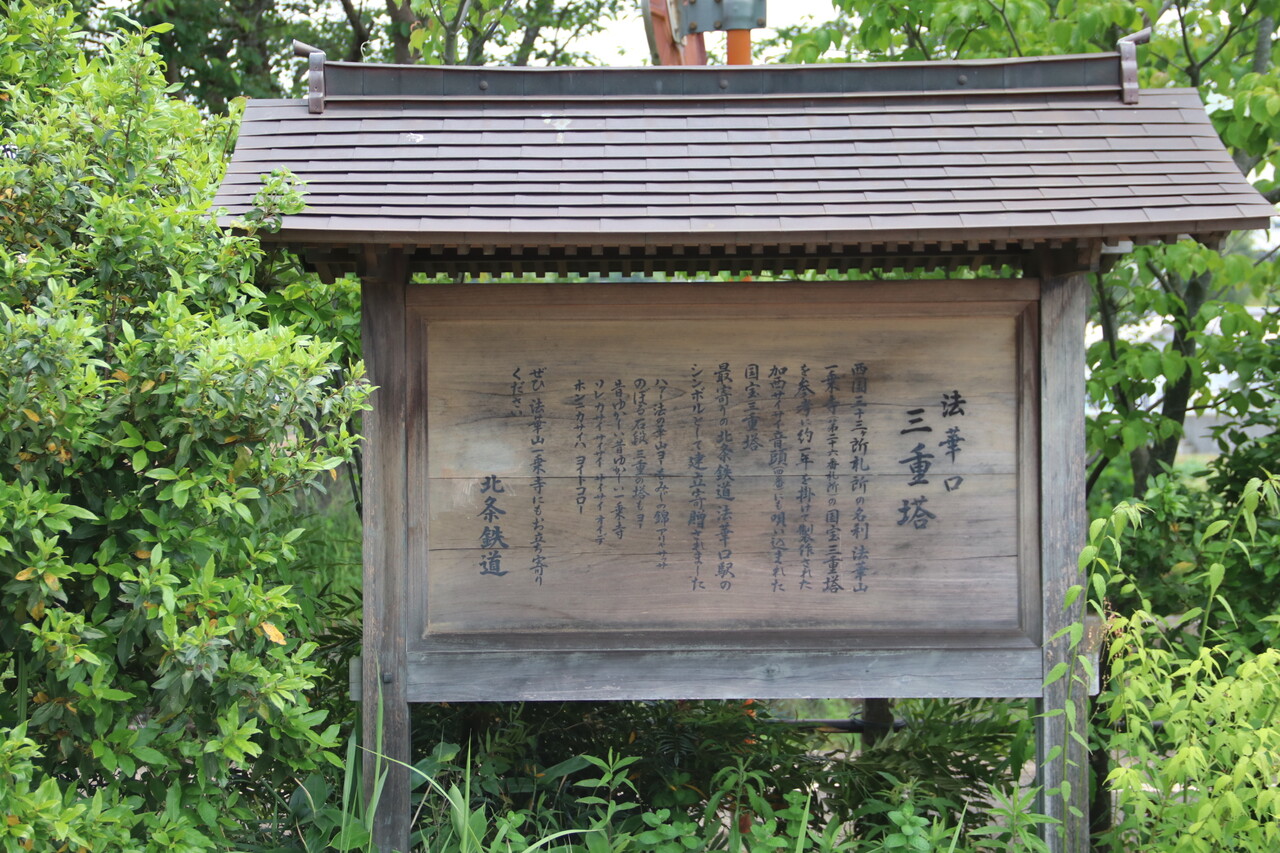 法華口
三重塔
西国三十三ヶ所札所の名刹 法華山
一乗寺（第二十六番札所）の国宝三重塔
を参考に約一年を掛けて製作された
加西サイサイ音頭（四番）にも唄い込まれた
国宝三重塔
最寄りの北条鉄道 法華口駅の
シンボルとして建立寄贈されました
ハァー法の華山ヨーもみじの錦でサササ
のぼる石段 三重の塔もヨー
昔ゆかし 昔ゆかし 一乗寺
ソレカイサイサイ サイサイオイデ
ホンニカサイハ ヨイトコロー
ぜひ 法華山一乗寺にもお立ち寄り
ください
北条鉄道